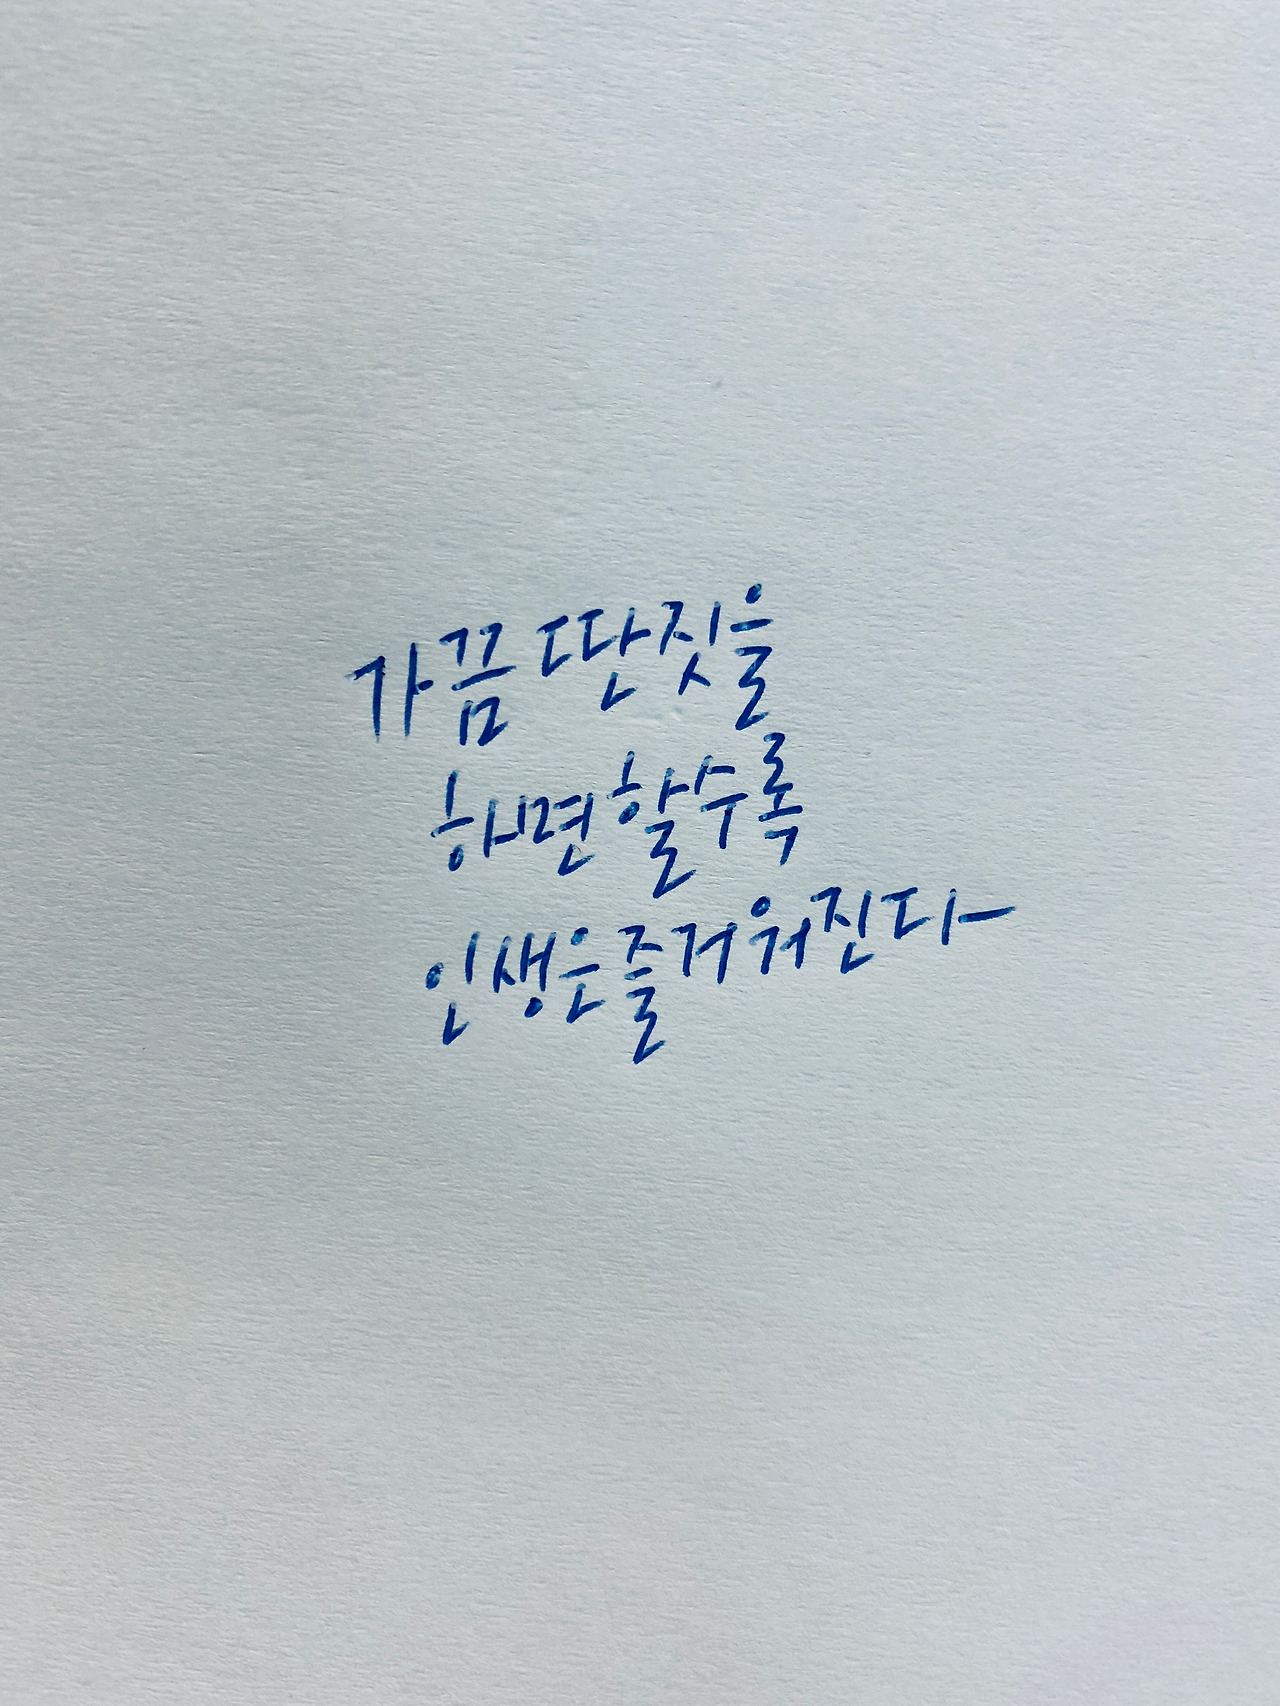 가끔 딴짓을
하면 할수록
인생은 즐거워진다